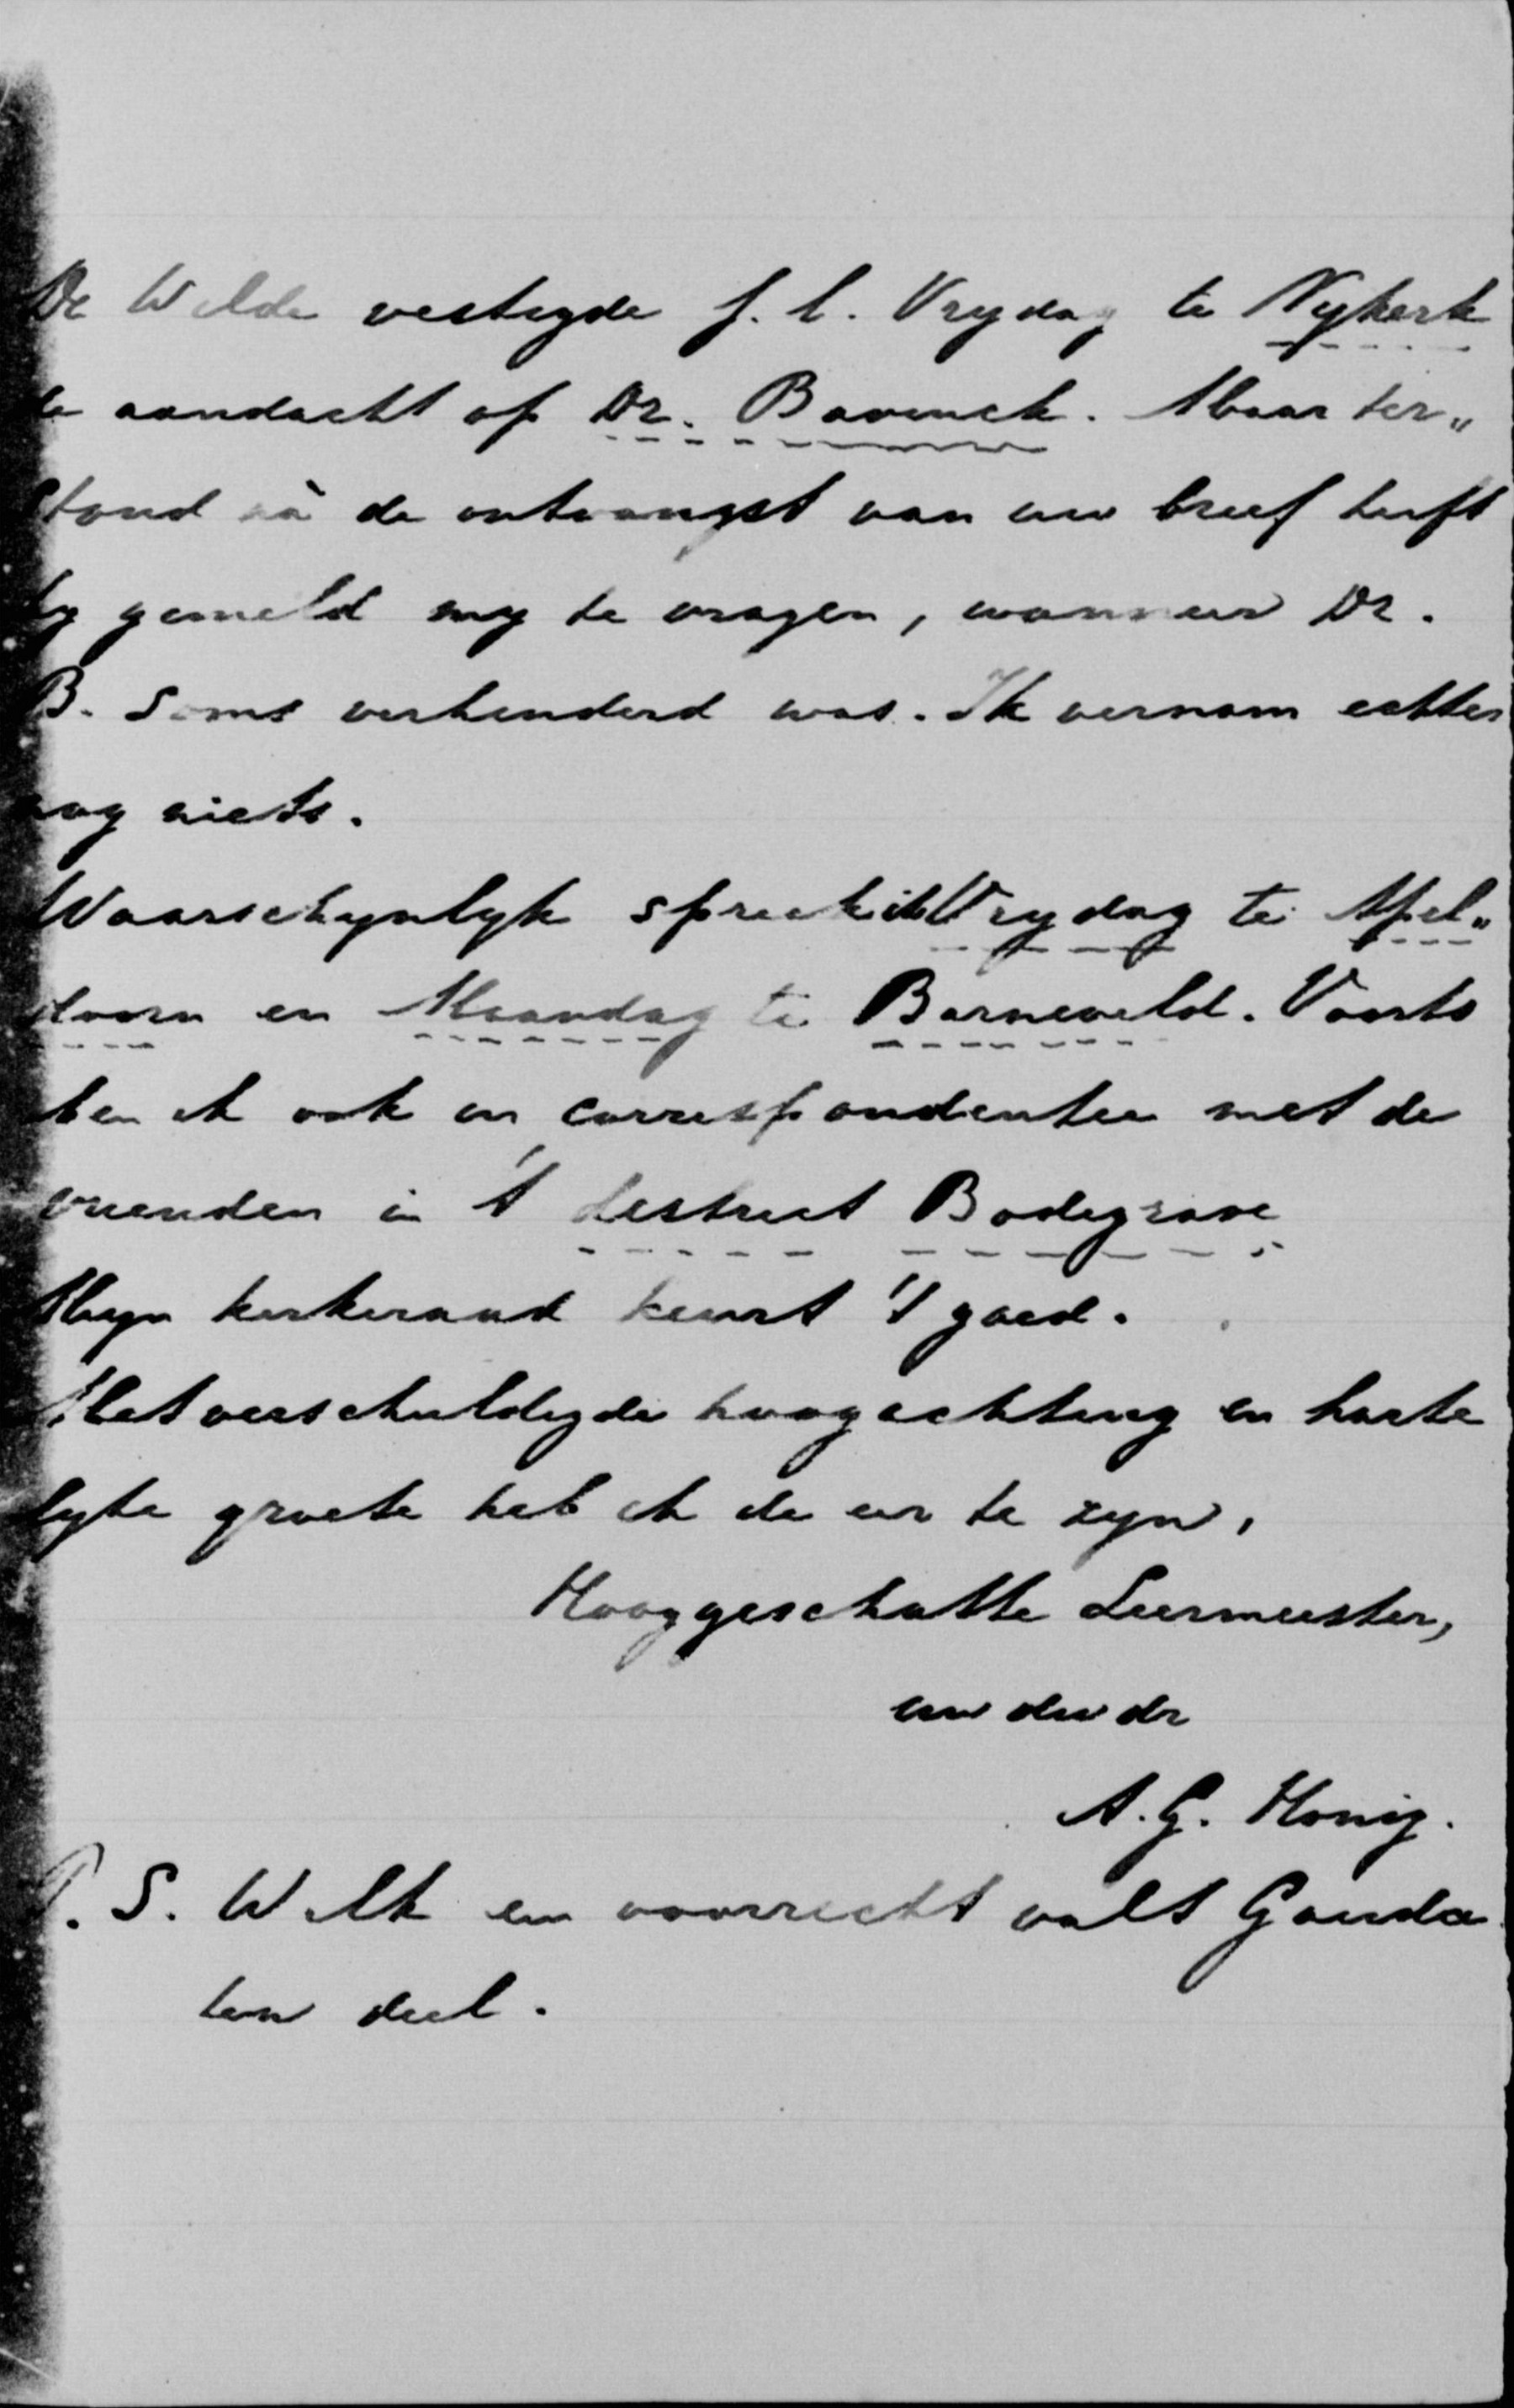 De Wilde vestigde j.l. Vrydag te Nykerk
de aandacht op Dr. Bavinck. Maar ter„
stond nà de ontvangst van uw brief heeft
hy gemeld my te vragen, wanneer Dr.
B. soms verhinderd was. Ik vernam echter
nog niets.
Waarschynlyk spreek ik Vrydag te Apel„
doorn en Maandag te Barneveld. Voorts
ben ik ook in correspondentie met de
vrienden in 't district Bodegrave
Myn kerkeraad keurt 't goed.
Met verschuldigde hoogachting en harte
lyke groete heb ik de eer te zyn,
Hooggeschatte Leermeester,
uw dw dr
A. G. Honig.
P. S. Welk een voorrecht valt Gouda
ten deel.